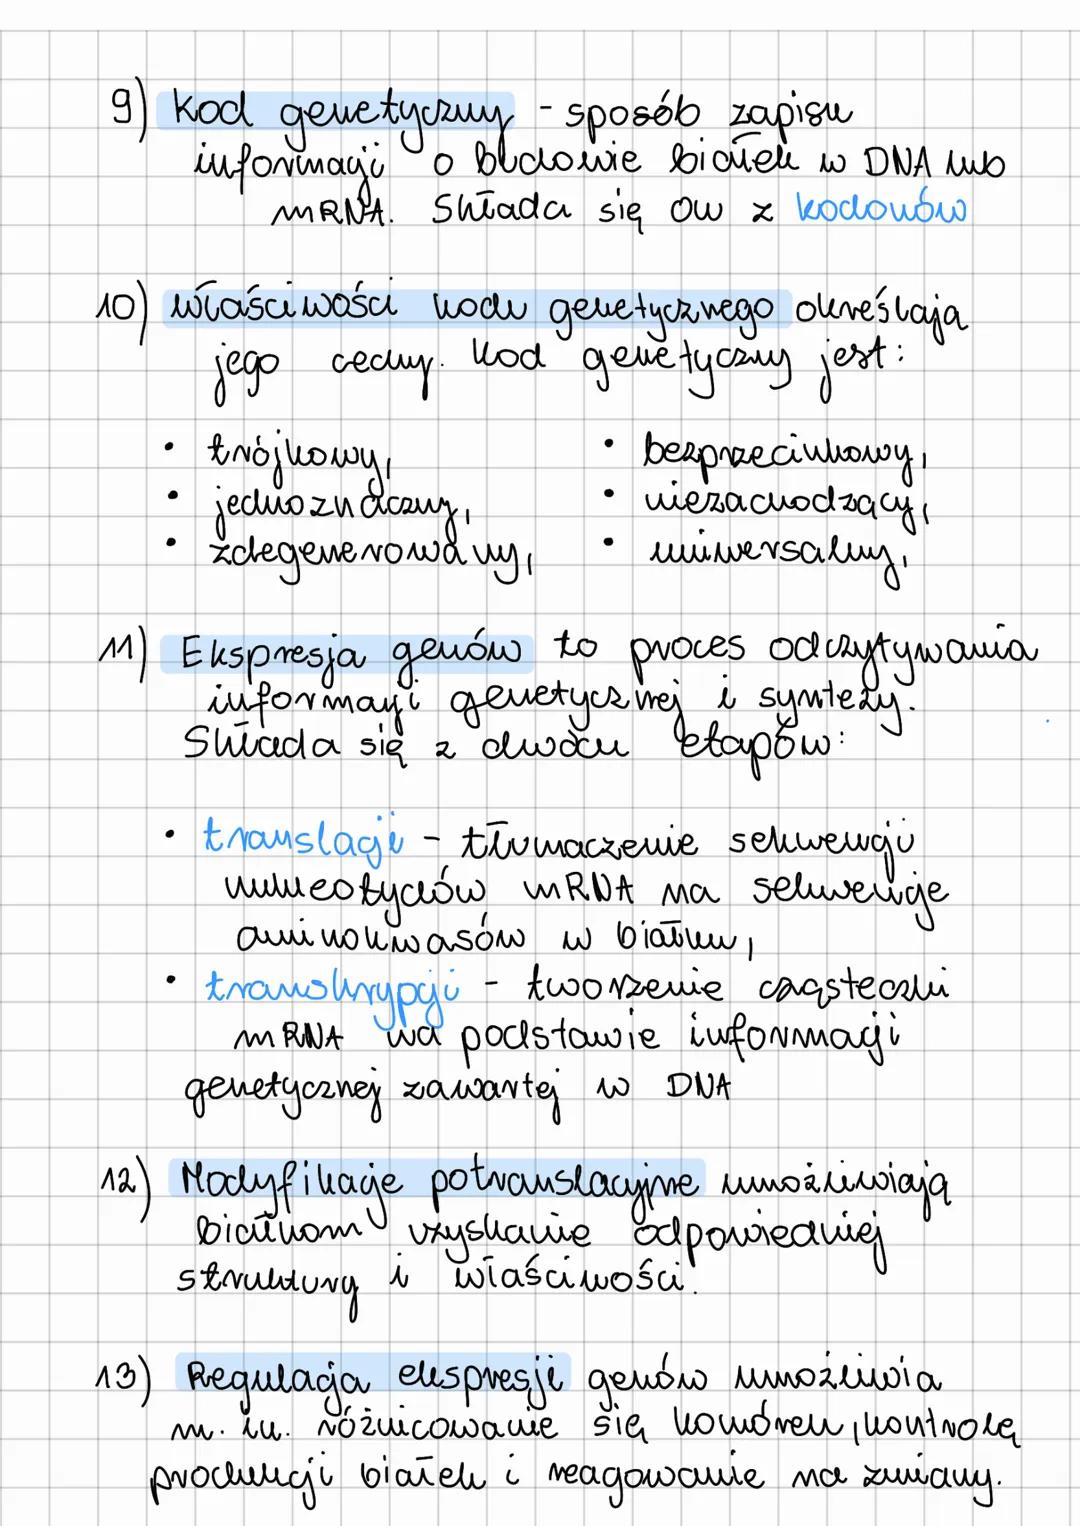 9) Kod genetyczny - sposób zapisu
informacji o budowie białek w DNA lub
mRNA. Składa się ow z kodonów
10) właściwości kodu genetycznego określają
jego cechy. Kod genetyczny jest:
• trójkowy,
• jednoznaczny,
• zdegenerowany,
• bezprzecinkowy,
• niezachodzący,
• uniwersalny,
11) Ekspresja genów to proces odczytywania
informacji genetycznej i syntezy.
Składa się z dwóch etapów:
• translacji - tłumaczenie sekwencji
nukleotydów mRNA na sekwencje
aminokwasów w białku,
• transkrypcji - tworzenie cząsteczki
mRNA na podstawie informacji
genetycznej zawartej w DNA
12) Modyfikacje potranslacyjne umożliwiają
białkom uzyskanie odpowiedniej
struktury i właściwości.
13) Regulacja ekspresji genów umożliwia
m. in. różnicowanie się komórek, kontrolę
produkcji białek i reagowanie na zmiany.